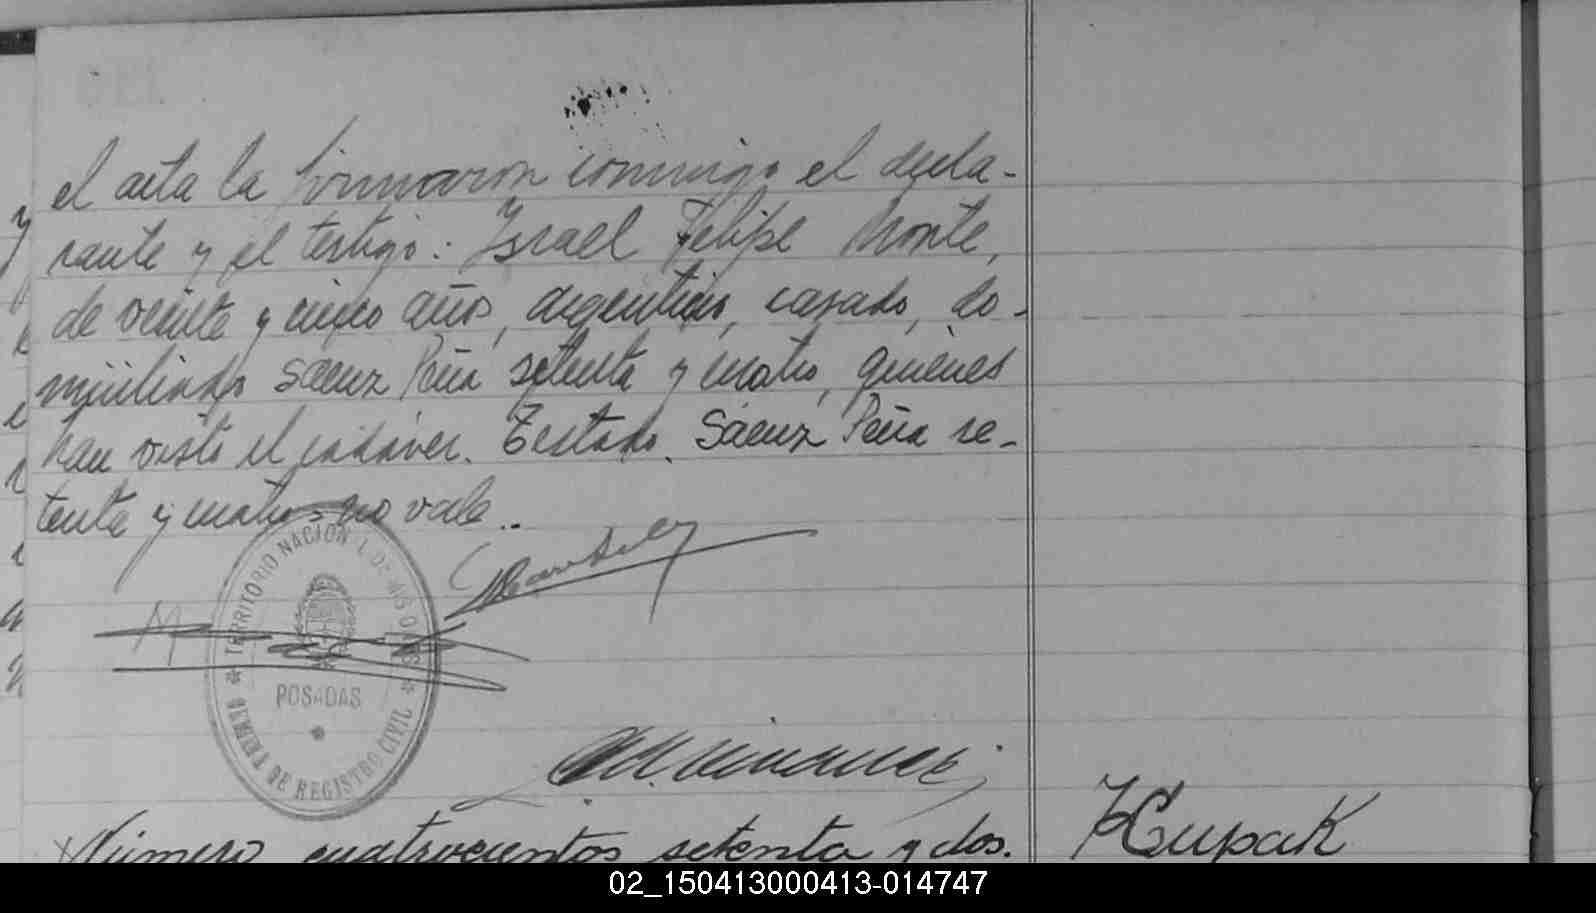 el acta la firmaron conmigo el decla-
rante y el testigo: Israel Felipe Monte,
de veinte y cinco años, argentino, casado, do-
miciliado Saenz Peña setenta y cuatro, quienes
han visto el cadáver. Testado. Saenz Peña se-
tenta y cuatro no vale..
TERRITORIO NACIONAL DE MISIONES
POSADAS
DE REGISTRO CIVIL
Número cuatrocientos setenta y dos.
Cupak
02_150413000413-014747